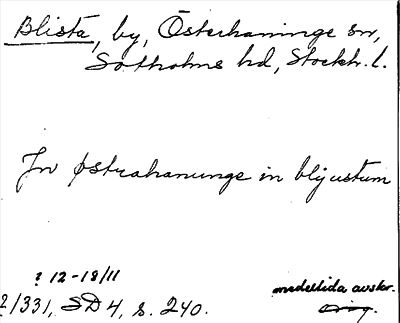 Blista, by, Österhaninge sn,
Sotholms hd, Stockh. l.
In østrahanunge in blijustum
? 12-18/11
medeltida avskr.
2/331, SD 4, s. 240.
orig.